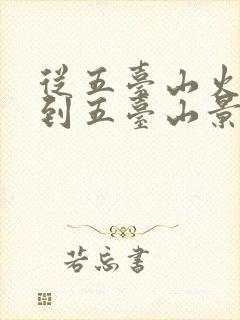 從五臺山火
到五臺山景
若忘書